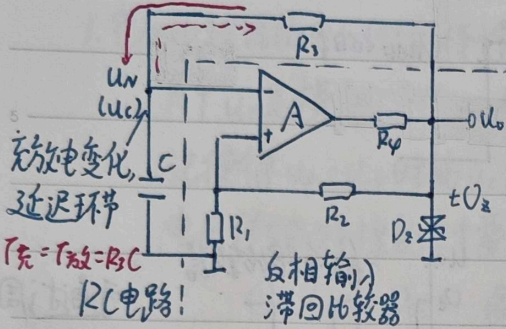 R₃
u_N
(u_C)
A
-
+
R₄
u₀
充放电变化,
延迟环节
C
R₁
R₂
±U_z
D_z
τ充=τ放=R₃C
RC电路!
反相输入
滞回比较器